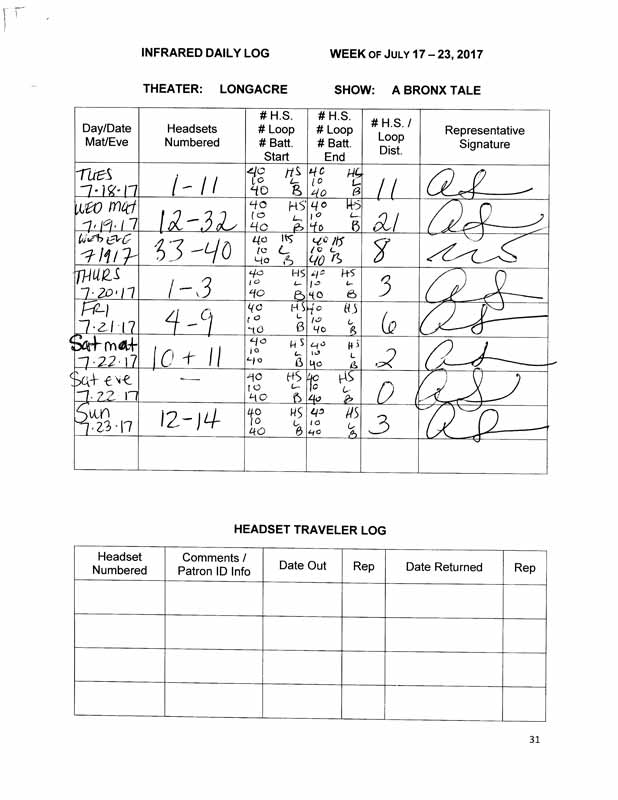 INFRARED DAILY LOG WEEK OF JULY 17 – 23, 2017
THEATER: LONGACRE SHOW: A BRONX TALE
Day/Date Mat/Eve Headsets Numbered # H.S. # Loop # Batt. Start # H.S. # Loop # Batt. End # H.S. / Loop Dist. Representative Signature
TUES 7-18-17 1-11 40 HS 10 L 40 B 40 HS 10 L 40 B 11
WED mat 7-19-17 12-32 40 HS 10 L 40 B 40 HS 10 L 40 B 21
Wed EVE 7/19/17 33-40 40 HS 10 L 40 B 40 HS 10 L 40 B 8
THURS 7-20-17 1-3 40 HS 10 L 40 B 40 HS 10 L 40 B 3
FRI 7-21-17 4-9 40 HS 10 L 40 B 40 HS 10 L 40 B 6
Sat mat 7-22-17 10 + 11 40 HS 10 L 40 B 40 HS 10 L 40 B 2
Sat eve 7-22 17 — 40 HS 10 L 40 B 40 HS 10 L 40 B 0
Sun 7-23-17 12-14 40 HS 10 L 40 B 40 HS 10 L 40 B 3
HEADSET TRAVELER LOG
Headset Numbered Comments / Patron ID Info Date Out Rep Date Returned Rep
31